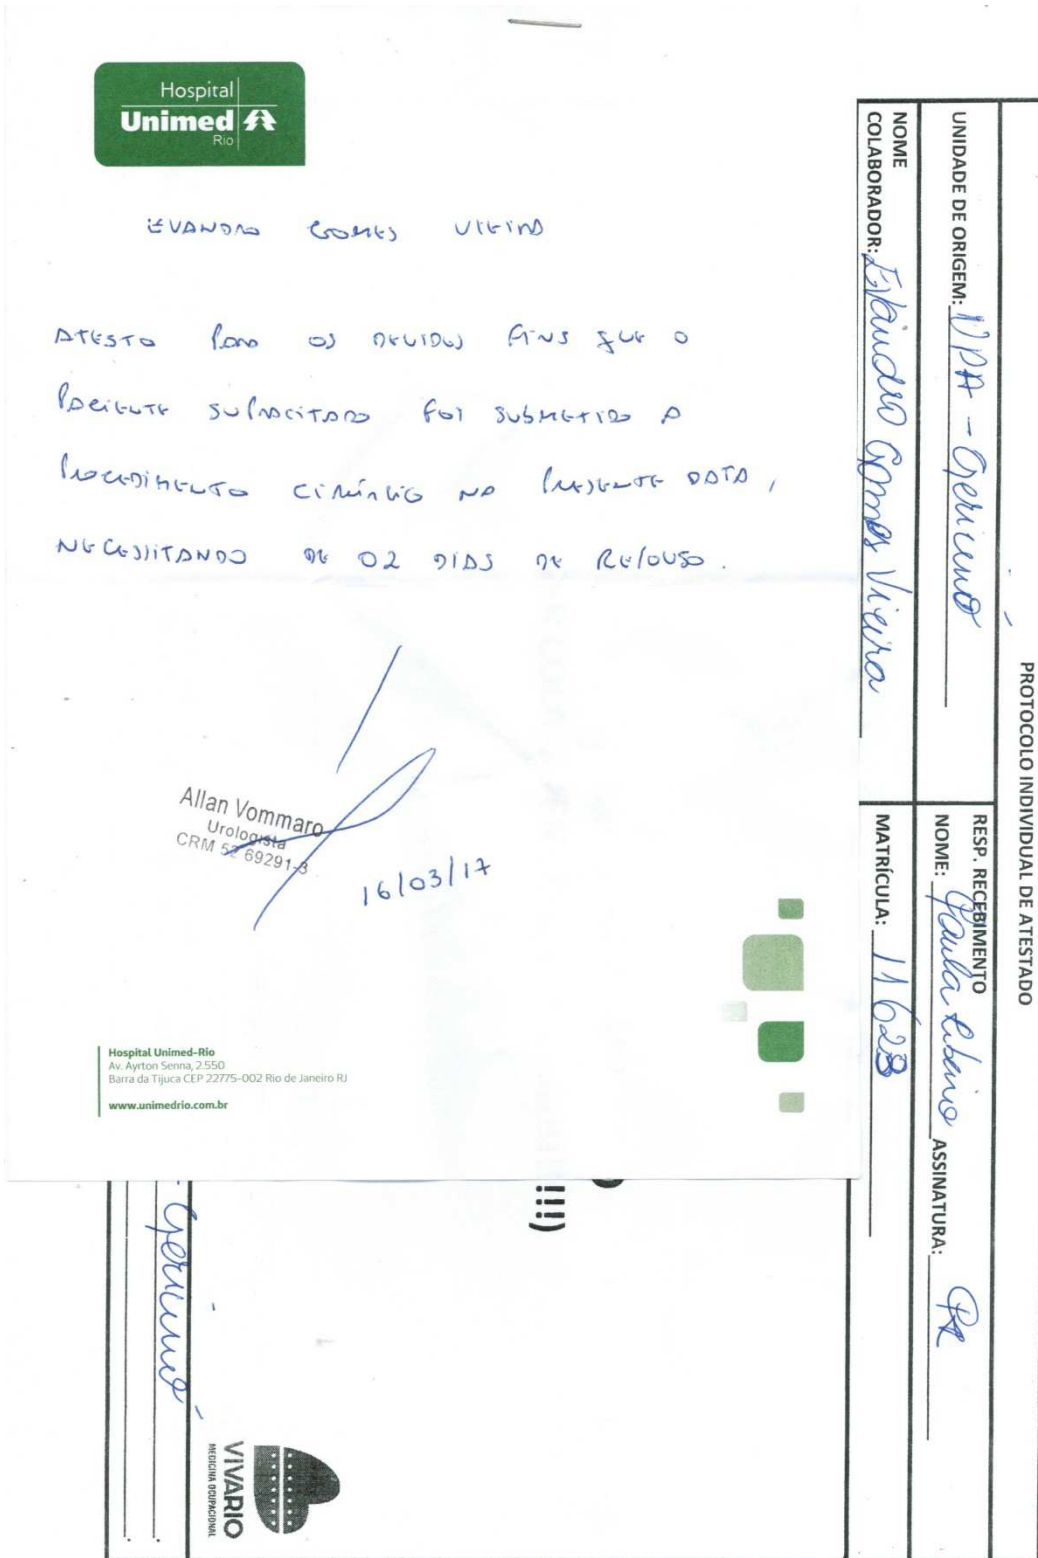 Hospital
Unimed
Rio
EVANDRO GOMES VIEIRA
ATESTO PARA OS DEVIDOS FINS QUE O
PACIENTE SUPRACITADO FOI SUBMETIDO A
PROCEDIMENTO CIRÚRGICO NA PRESENTE DATA,
NECESSITANDO DE 02 DIAS DE REPOUSO.
Allan Vommaro
Urologista
CRM 52 69291-3
16/03/17
Hospital Unimed-Rio
Av. Ayrton Senna, 2.550
Barra da Tijuca CEP 22775-002 Rio de Janeiro RJ
www.unimedrio.com.br
PROTOCOLO INDIVIDUAL DE ATESTADO
UNIDADE DE ORIGEM: UPA - Gericinó
RESP. RECEBIMENTO
NOME: Paula ASSINATURA: PR
NOME
COLABORADOR: Evandro Gomes Vieira
MATRÍCULA: 11628
!!!)
- Gericinó
VIVARIO
MEDICINA OCUPACIONAL